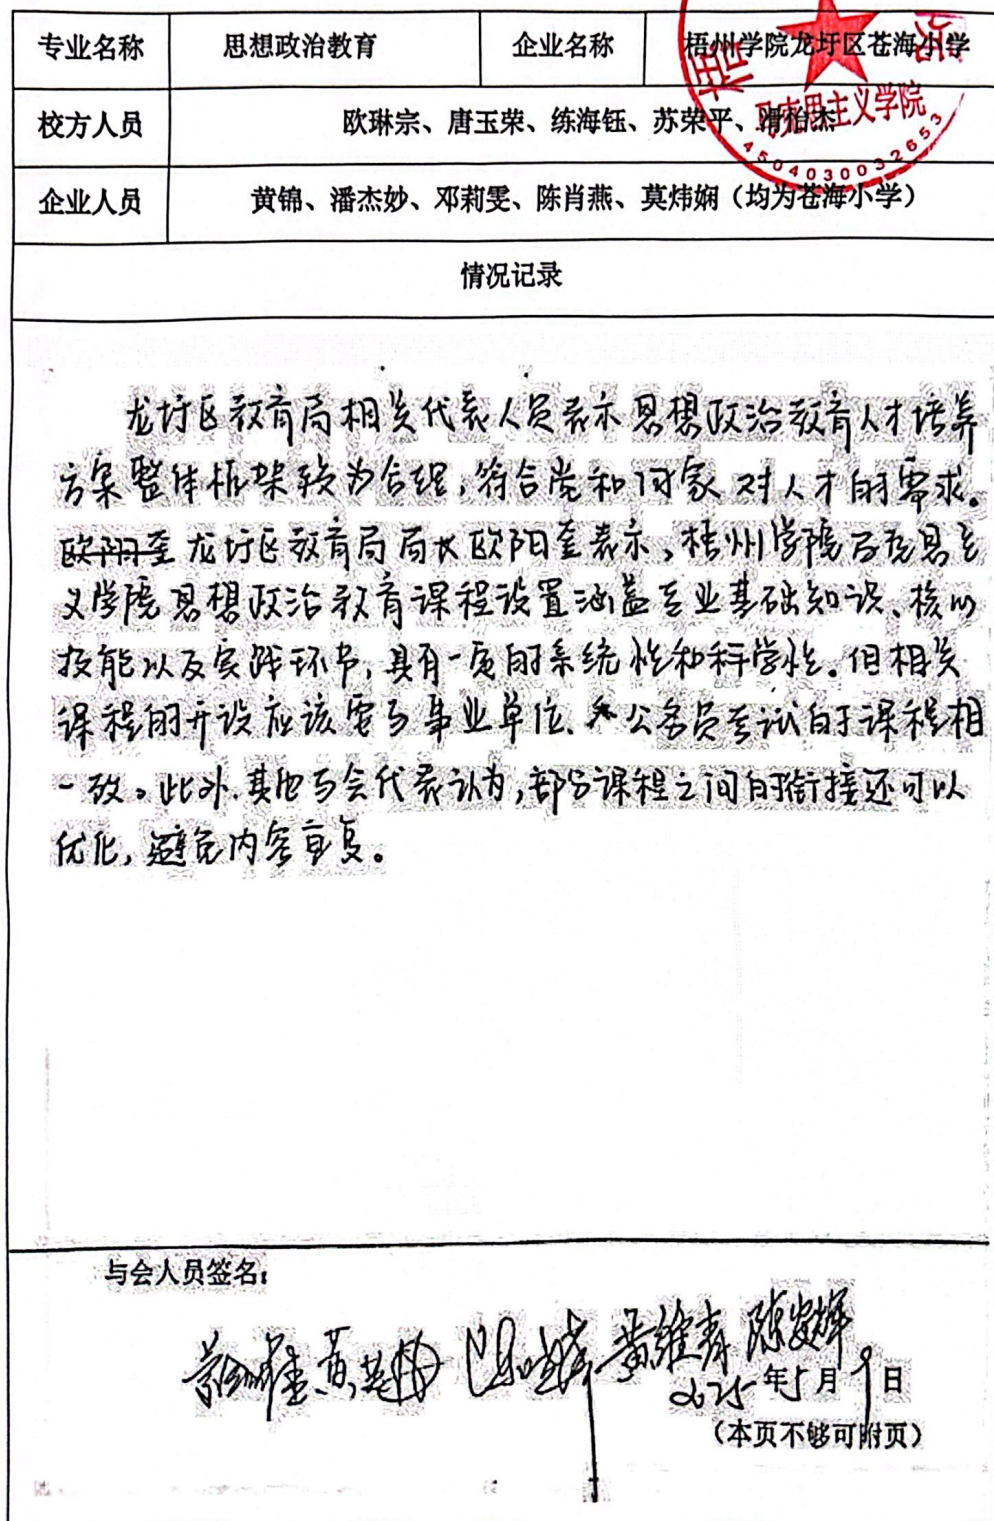 专业名称 思想政治教育 企业名称 梧州学院龙圩区苍海小学
校方人员 欧琳宗、唐玉荣、练海钰、苏荣平、滑怡杰
企业人员 黄锦、潘杰妙、邓莉雯、陈肖燕、莫炜娴（均为苍海小学）
马克思主义学院
4504030032653
情况记录
龙圩区教育局相关代表人员表示思想政治教育人才培养
方案整体框架较为合理，符合党和国家对人才的需求。
欧阳奎龙圩区教育局局长欧阳奎表示，梧州学院马克思主
义学院思想政治教育课程设置涵盖专业基础知识、核心
技能以及实践环节，具有一定的系统性和科学性。但相关
课程的开设应该要与事业单位、公务员考试的课程相
一致。此外，其他与会代表认为，部分课程之间的衔接还可以
优化，避免内容重复。
与会人员签名：
黄维青 陈发辉
2025年5月9日
（本页不够可附页）